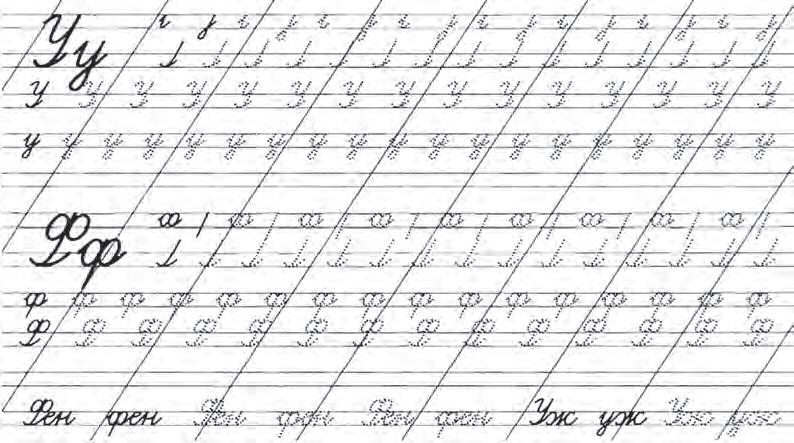 Уу
У У У У У У У У У У У У У У У
у у у у у у у у у у у у у у у у у у у
Фф
ф ф ф ф ф ф ф ф ф ф ф ф ф ф ф ф
Ф Ф Ф Ф Ф Ф Ф Ф Ф Ф Ф Ф Ф Ф
Фен фен Фен фен Фен фен Уж уж Уж уж